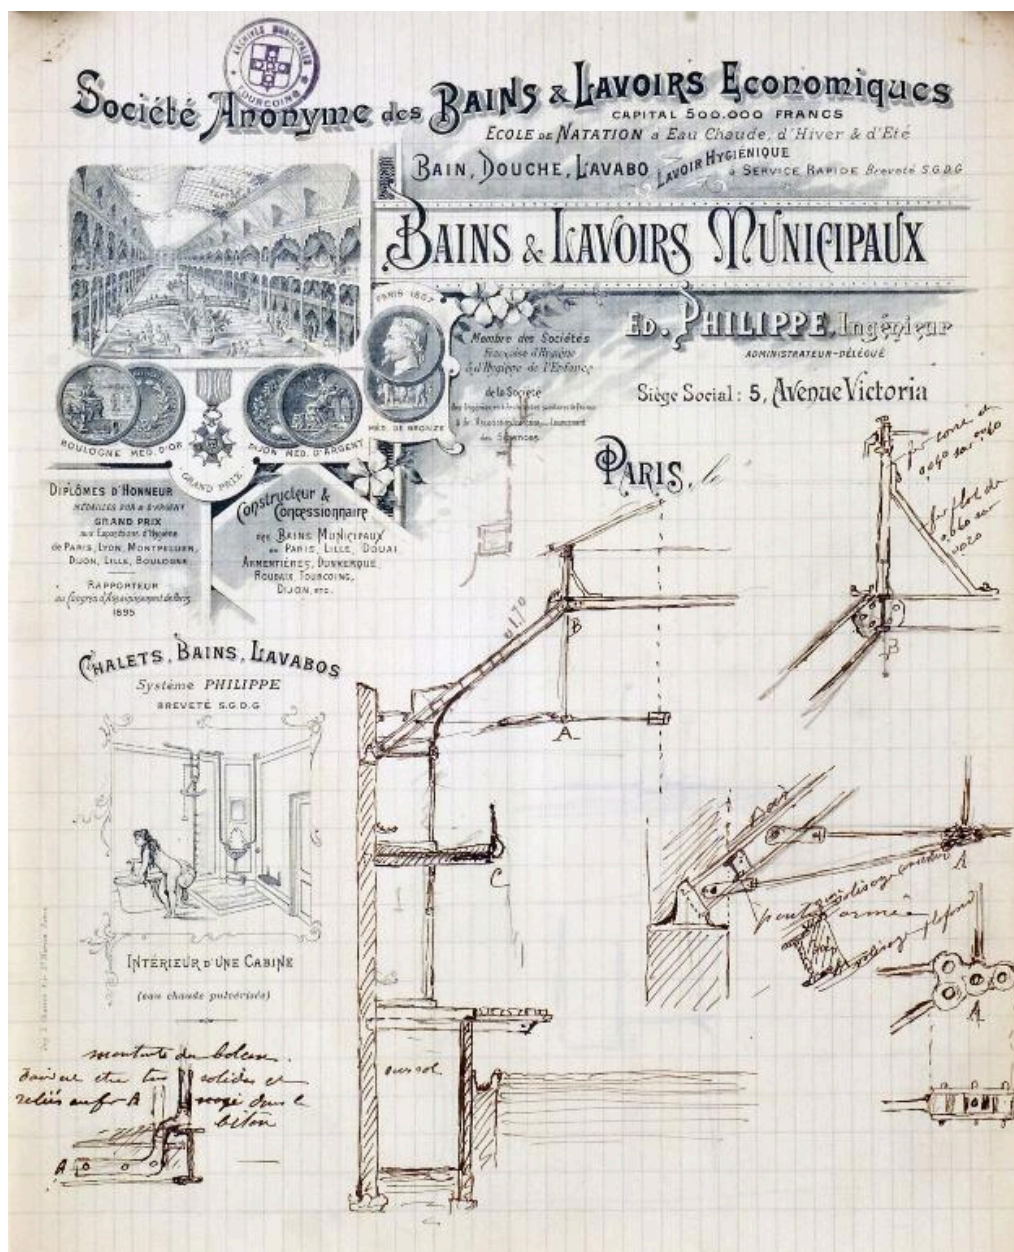 ARCHIVES MUNICIPALES
TOURCOING
Société Anonyme des BAINS & LAVOIRS Economiques
CAPITAL 500.000 FRANCS
ECOLE DE NATATION à Eau Chaude, d'Hiver & d'Eté
BAIN, DOUCHE, LAVABO LAVOIR HYGIÉNIQUE
à SERVICE RAPIDE Breveté S.G.D.G
BAINS & LAVOIRS MUNICIPAUX
ED. PHILIPPE, Ingénieur
ADMINISTRATEUR-DÉLÉGUÉ
Siège Social: 5, Avenue Victoria
PARIS, le
PARIS 1867
MÉD. DE BRONZE
Membre des Sociétés
Française d'Hygiène
& d'Hygiène de l'Enfance
de la Société
des Sciences
BOULOGNE MED. D'OR
DIJON MED. D'ARGENT
GRAND PRIX
DIPLÔMES D'HONNEUR
MÉDAILLES D'OR & D'ARGENT
GRAND PRIX
aux Expositions d'Hygiène
de PARIS, LYON, MONTPELLIER,
DIJON, LILLE, BOULOGNE
RAPPORTEUR
au Congrès d'Assainissement de Paris
1895
Constructeur &
Concessionnaire
des BAINS MUNICIPAUX
de PARIS, LILLE, DOUAI
ARMENTIÈRES, DUNKERQUE,
ROUBAIX, TOURCOING,
DIJON, ETC.
CHALETS, BAINS, LAVABOS
Système PHILIPPE
BREVETÉ S.G.D.G
INTÉRIEUR D'UNE CABINE
(eau chaude pulvérisée)
1,70
B
A
A
C
sous sol
B
A
A
armée
plafond
montants du balcon
doivent etre très solides et
reliés au fer A
béton
A